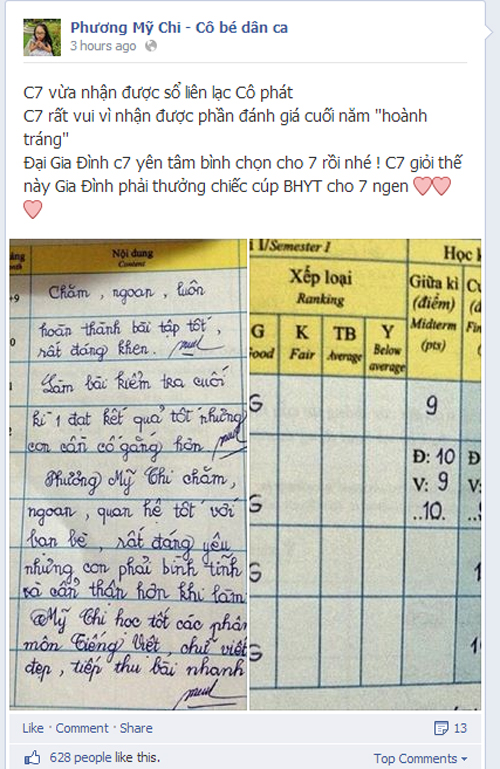 Phương Mỹ Chi - Cô bé dân ca
3 hours ago
C7 vừa nhận được sổ liên lạc Cô phát
C7 rất vui vì nhận được phần đánh giá cuối năm "hoành
tráng"
Đại Gia Đình c7 yên tâm bình chọn cho 7 rồi nhé ! C7 giỏi thế
này Gia Đình phải thưởng chiếc cúp BHYT cho 7 ngen
Nội dung
Content
Chăm, ngoan, luôn
hoàn thành bài tập tốt,
rất đáng khen.
Làm bài kiểm tra cuối
kì 1 đạt kết quả tốt nhưng
con cần cố gắng hơn
Phương Mỹ Chi chăm,
ngoan, quan hệ tốt với
bạn bè, rất đáng yêu
nhưng con phải bình tĩnh
và cẩn thận hơn khi làm
Mỹ Chi học tốt các phân
môn Tiếng Việt, chữ viết
đẹp, tiếp thu bài nhanh
I/Semester I
Học k
Xếp loại
Ranking
Giữa kì
(điểm)
Midterm
(pts)
G
ood
K
Fair
TB
Average
Y
Below
average
G
9
Đ: 10
V: 9
..10.
G
G
G
Like · Comment · Share
13
628 people like this.
Top Comments